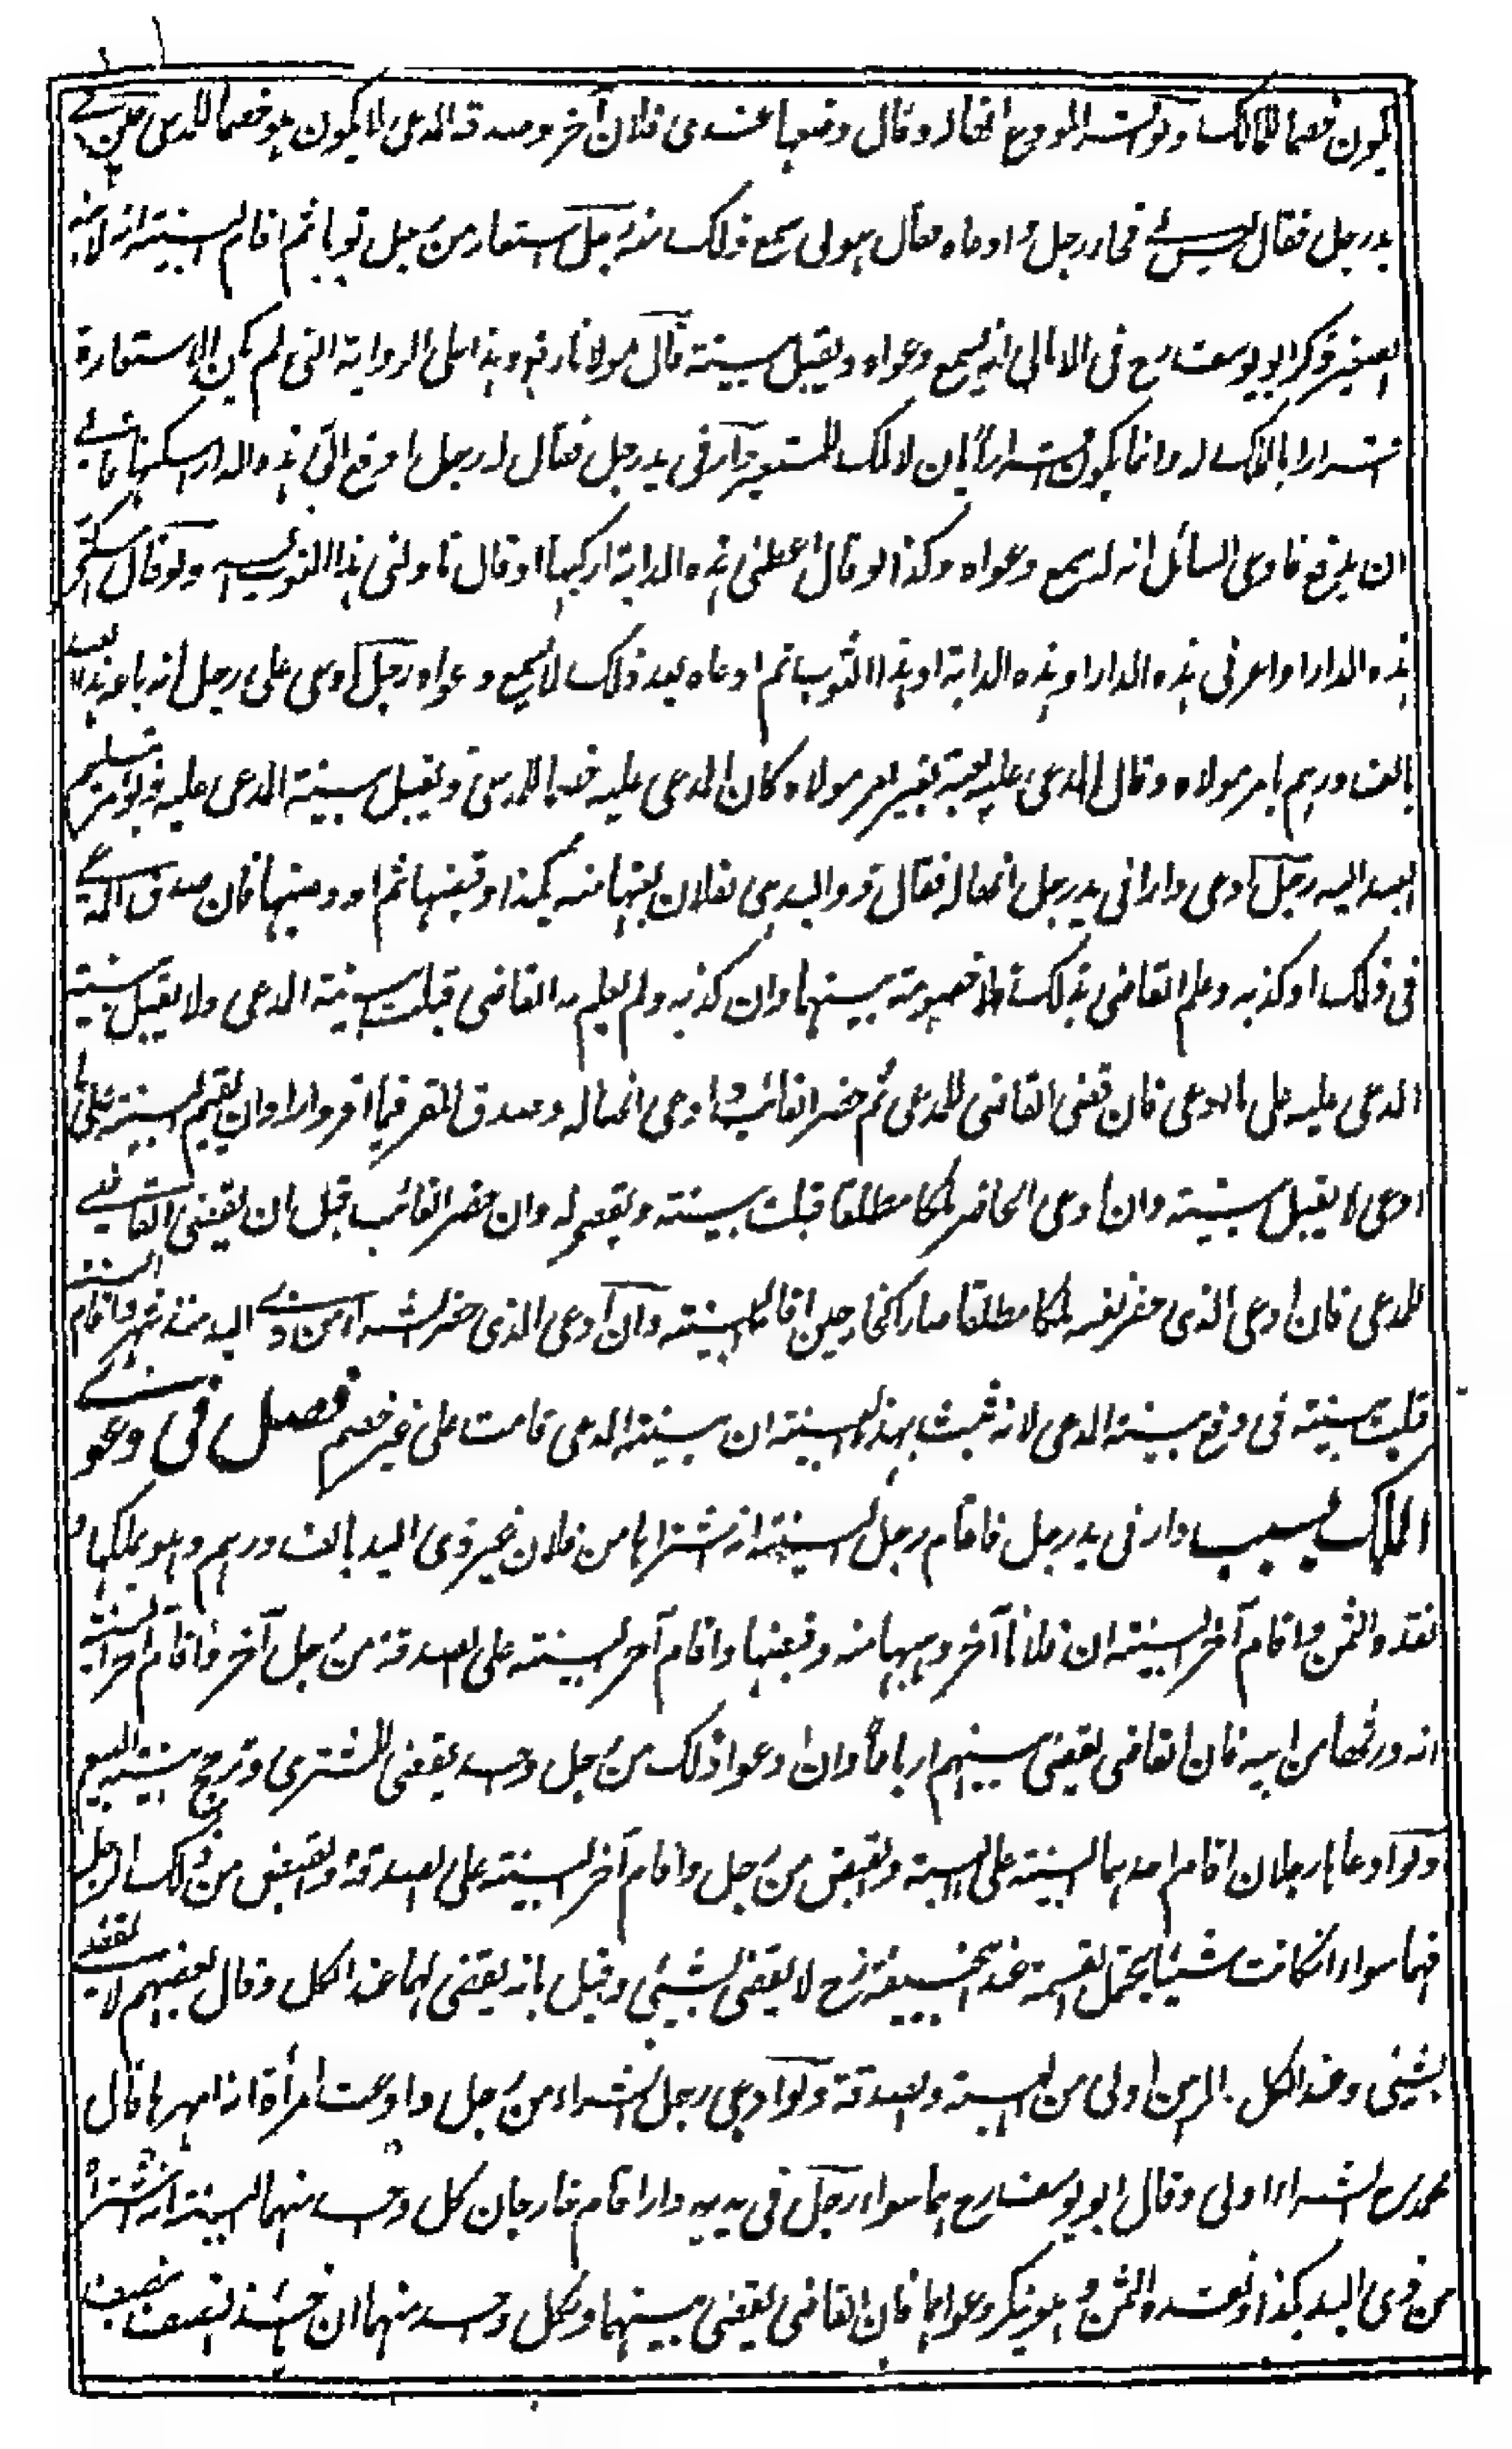 يكون خصما للمالك ولو انكر المودع انها له وقال وضعها عندى فلان آخر وصدقه المدعى لا يكون هو خصما للمدعى عين فى
يد رجل فقال ليس لى فجاء رجل وادعاه فقال هو لى يسمع ذلك منه رجل استعار من رجل ثوبا ثم اقام البينة انه لابنه
الصغير ذكر ابو يوسف رح فى الامالى انه يسمع دعواه ويقبل بينته قال مولانا رض وهذا على الرواية التى لم يكن الاستعارة
اقرارا بالملك له وانما يكون اقرارا بان لا ملك للمستعير دار فى يد رجل فقال له رجل ادفع الى هذه الدار اسكنها فابى
ان يدفع فادعى السائل انه له يسمع دعواه وكذا لو قال اعطنى هذه الدابة اركبها او قال ناولنى هذا الثوب البسه ولو قال اسكنى
هذه الدار او اعرنى هذه الدار او هذه الدابة او هذا الثوب ثم ادعاه بعد ذلك لا يسمع دعواه رجل ادعى على رجل انه باعه هذا العبد
بالف درهم بامر مولاه وقال المدعى عليه بعته بغير امر مولاه كان المدعى عليه خصما للمدعى ويقبل بينة المدعى عليه ويؤمر بتسليم
العبد اليه رجل ادعى دارا فى يد رجل انها له فقال ذو اليد هى لفلان بعتها منه بكذا وقبضها ثم اودعنيها فان صدقه المدعى
فى ذلك او كذبه وعلم القاضى بذلك فلا خصومة بينهما وان كذبه ولم يعلم به القاضى قبلت بينة المدعى ولا يقبل بينة
المدعى عليه على ما ادعى فان قضى القاضى للمدعى ثم حضر الغائب وادعى انها له وصدق المقر فيما اقر واراد ان يقيم البينة على ما
ادعى لا يقبل بينته وان ادعى الحاضر ملكا مطلقا قبلت بينته ويقضى له وان حضر الغائب قبل ان يقضى القاضى
للمدعى فان ادعى الذى حضر لنفسه ملكا مطلقا صارا كخارجين اقاما البينة وان ادعى الذى حضر الشراء من ذى اليد منذ شهر واقام البينة
قبلت بينته فى دفع بينة المدعى لانه ثبت بهذه البينة ان بينة المدعى قامت على غير خصم فصل فى دعوى
الملك بسبب دار فى يد رجل فاقام رجل البينة انه اشتراها من فلان غير ذى اليد بالف درهم وهو يملكها و
نقده الثمن واقام آخر البينة ان فلانا آخر وهبها منه وقبضها واقام آخر البينة على الصدقة من رجل آخر واقام آخر البينة
انه ورثها من ابيه فان القاضى يقضى بينهم ارباعا وان ادعوا ذلك من رجل واحد يقضى للمشترى وترجح بينة البيع
ولو ادعاها رجلان اقام احدهما البينة على الهبة والقبض من رجل واقام آخر البينة على الصدقة والقبض من ذلك الرجل
فهما سواء وان كانت شيئا يحتمل القسمة عند ابى حنيفة رح لا يقضى بشئ وقيل بانه يقضى لهما عند الكل وقال بعضهم لا يقضى
بشئ وعند الكل الرهن اولى من الهبة والصدقة ولو ادعى رجل الشراء من رجل وادعت امرأة انه امهرها قال
محمد رح الشراء اولى وقال ابو يوسف رح هما سواء رجل فى يديه دار اقام خارجان كل واحد منهما البينة انه اشتراها
من ذى اليد بكذا ونقده الثمن وهو ينكر دعواهما فان القاضى يقضى بينهما ولكل واحد منهما ان يأخذ النصف بنصف